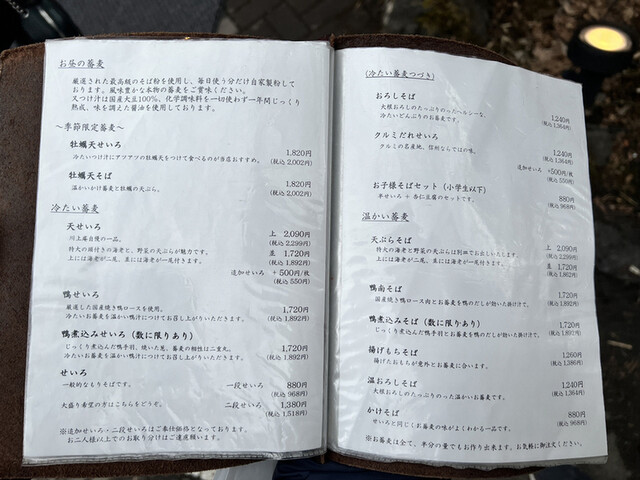 お昼の蕎麦
厳選された最高級のそば粉を使用し、毎日使う分だけ自家製粉して
おります。風味豊かな本物の蕎麦をご賞味ください。
又つけ汁は国産大豆100%、化学調味料を一切使わず一年間じっくり
熟成、味を調えた醤油を使用しております。
～季節限定蕎麦～
牡蠣天せいろ 1,820円
冷たいつけ汁にアツアツの牡蠣天をつけて食べるのが当店おすすめ。 (税込 2,002円)
牡蠣天そば 1,820円
温かいかけ蕎麦と牡蠣の天ぷら。 (税込 2,002円)
冷たい蕎麦
天せいろ 上 2,090円
川上庵自慢の一品。 (税込 2,299円)
特大の頭付きの海老と、野菜の天ぷらが魅力です。 並 1,720円
上には海老が二尾、並には海老が一尾付きます。 (税込 1,892円)
追加せいろ +500円/枚
(税込 550円)
鴨せいろ
厳選した国産焼き鴨ロースを使用。 1,720円
冷たいお蕎麦を温かい鴨汁につけてお召し上がりいただきます。 (税込 1,892円)
鴨煮込みせいろ (数に限りあり)
じっくり煮込んだ鴨手羽、焼いた葱、蕎麦の相性は二重丸。 1,720円
冷たいお蕎麦を温かい鴨汁につけてお召し上がりいただきます。 (税込 1,892円)
せいろ
一般的なもりそばです。 一段せいろ 880円
(税込 968円)
大盛り希望の方はこちらをどうぞ。 二段せいろ 1,380円
(税込 1,518円)
※追加せいろ・二段せいろはご奉仕価格となっております。
お二人様以上でのお取り分けはご遠慮願います。
(冷たい蕎麦つづき)
おろしそば
大根おろしのたっぷりのったヘルシーな、 1,240円
冷たいどんぶりのお蕎麦です。 (税込 1,364円)
クルミだれせいろ 1,240円
クルミの名産地、信州ならではの味。 (税込 1,364円)
追加せいろ +500円/枚
(税込 550円)
お子様そばセット (小学生以下) 880円
半せいろ + 杏仁豆腐のセットです。 (税込 968円)
温かい蕎麦
天ぷらそば 上 2,090円
特大の海老と野菜の天ぷらは別皿でお出しいたします。 (税込 2,299円)
上には海老が二尾、並には海老が一尾付きます。 並 1,720円
(税込 1,892円)
鴨南そば 1,720円
国産焼き鴨ロース肉とお蕎麦を鴨のだしが効いた掛け汁で。 (税込 1,892円)
鴨煮込みそば (数に限りあり) 1,720円
じっくり煮込んだ鴨手羽とお蕎麦を鴨のだしが効いた掛け汁で。 (税込 1,892円)
揚げもちそば 1,260円
揚げたおもちが意外とお蕎麦に合います。 (税込 1,386円)
温おろしそば 1,240円
大根おろしのたっぷりのった温かいお蕎麦です。 (税込 1,364円)
かけそば 880円
せいろと同じくお蕎麦の味がよくわかる一品です。 (税込 968円)
※お蕎麦は全て、半分の量でもお作り出来ます。お気軽に御注文ください。